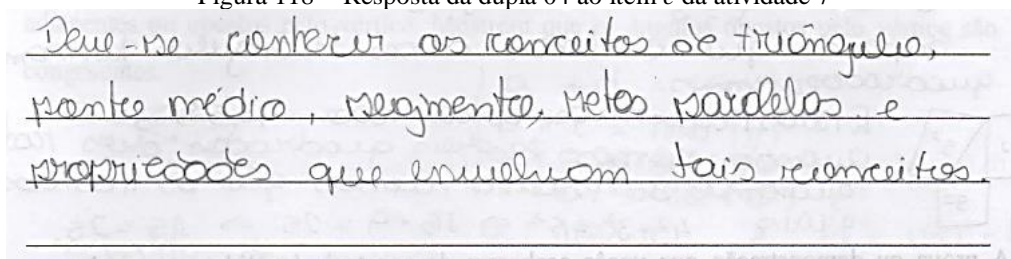 Figura 118 – Resposta da dupla 04 ao item e da atividade 7
Deve-se conhecer os conceitos de triângulo,
ponto médio, segmento, retas paralelas e
propriedades que envolvam tais conceitos.